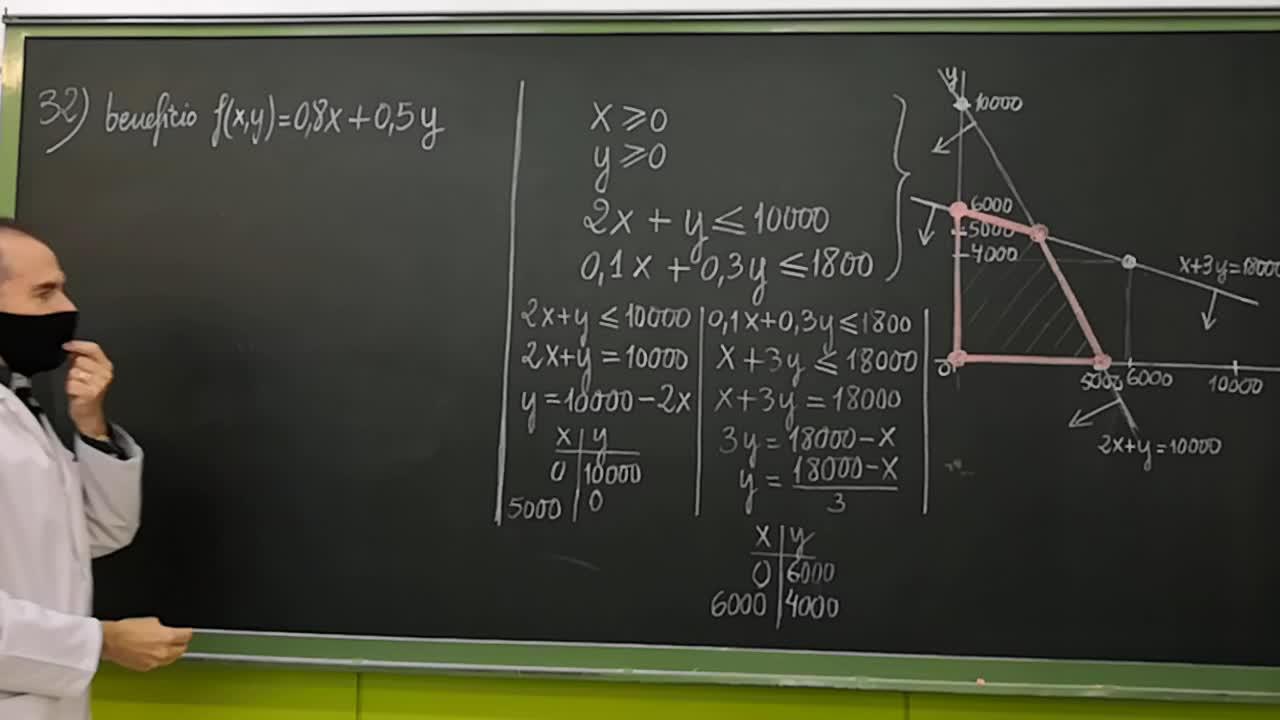 32) beneficio f(x,y)=0,8x+0,5y
x ≥ 0
y ≥ 0
2x + y ≤ 10000
0,1x + 0,3y ≤ 1800
2x+y ≤ 10000
2x+y = 10000
y = 10000 - 2x
x | y
0 | 10000
5000 | 0
0,1x+0,3y ≤ 1800
x + 3y ≤ 18000
x + 3y = 18000
3y = 18000 - x
y = (18000 - x)/3
x | y
0 | 6000
6000 | 4000
y
10000
6000
5000
4000
x+3y=18000
0
5000 6000 10000
2x+y=10000